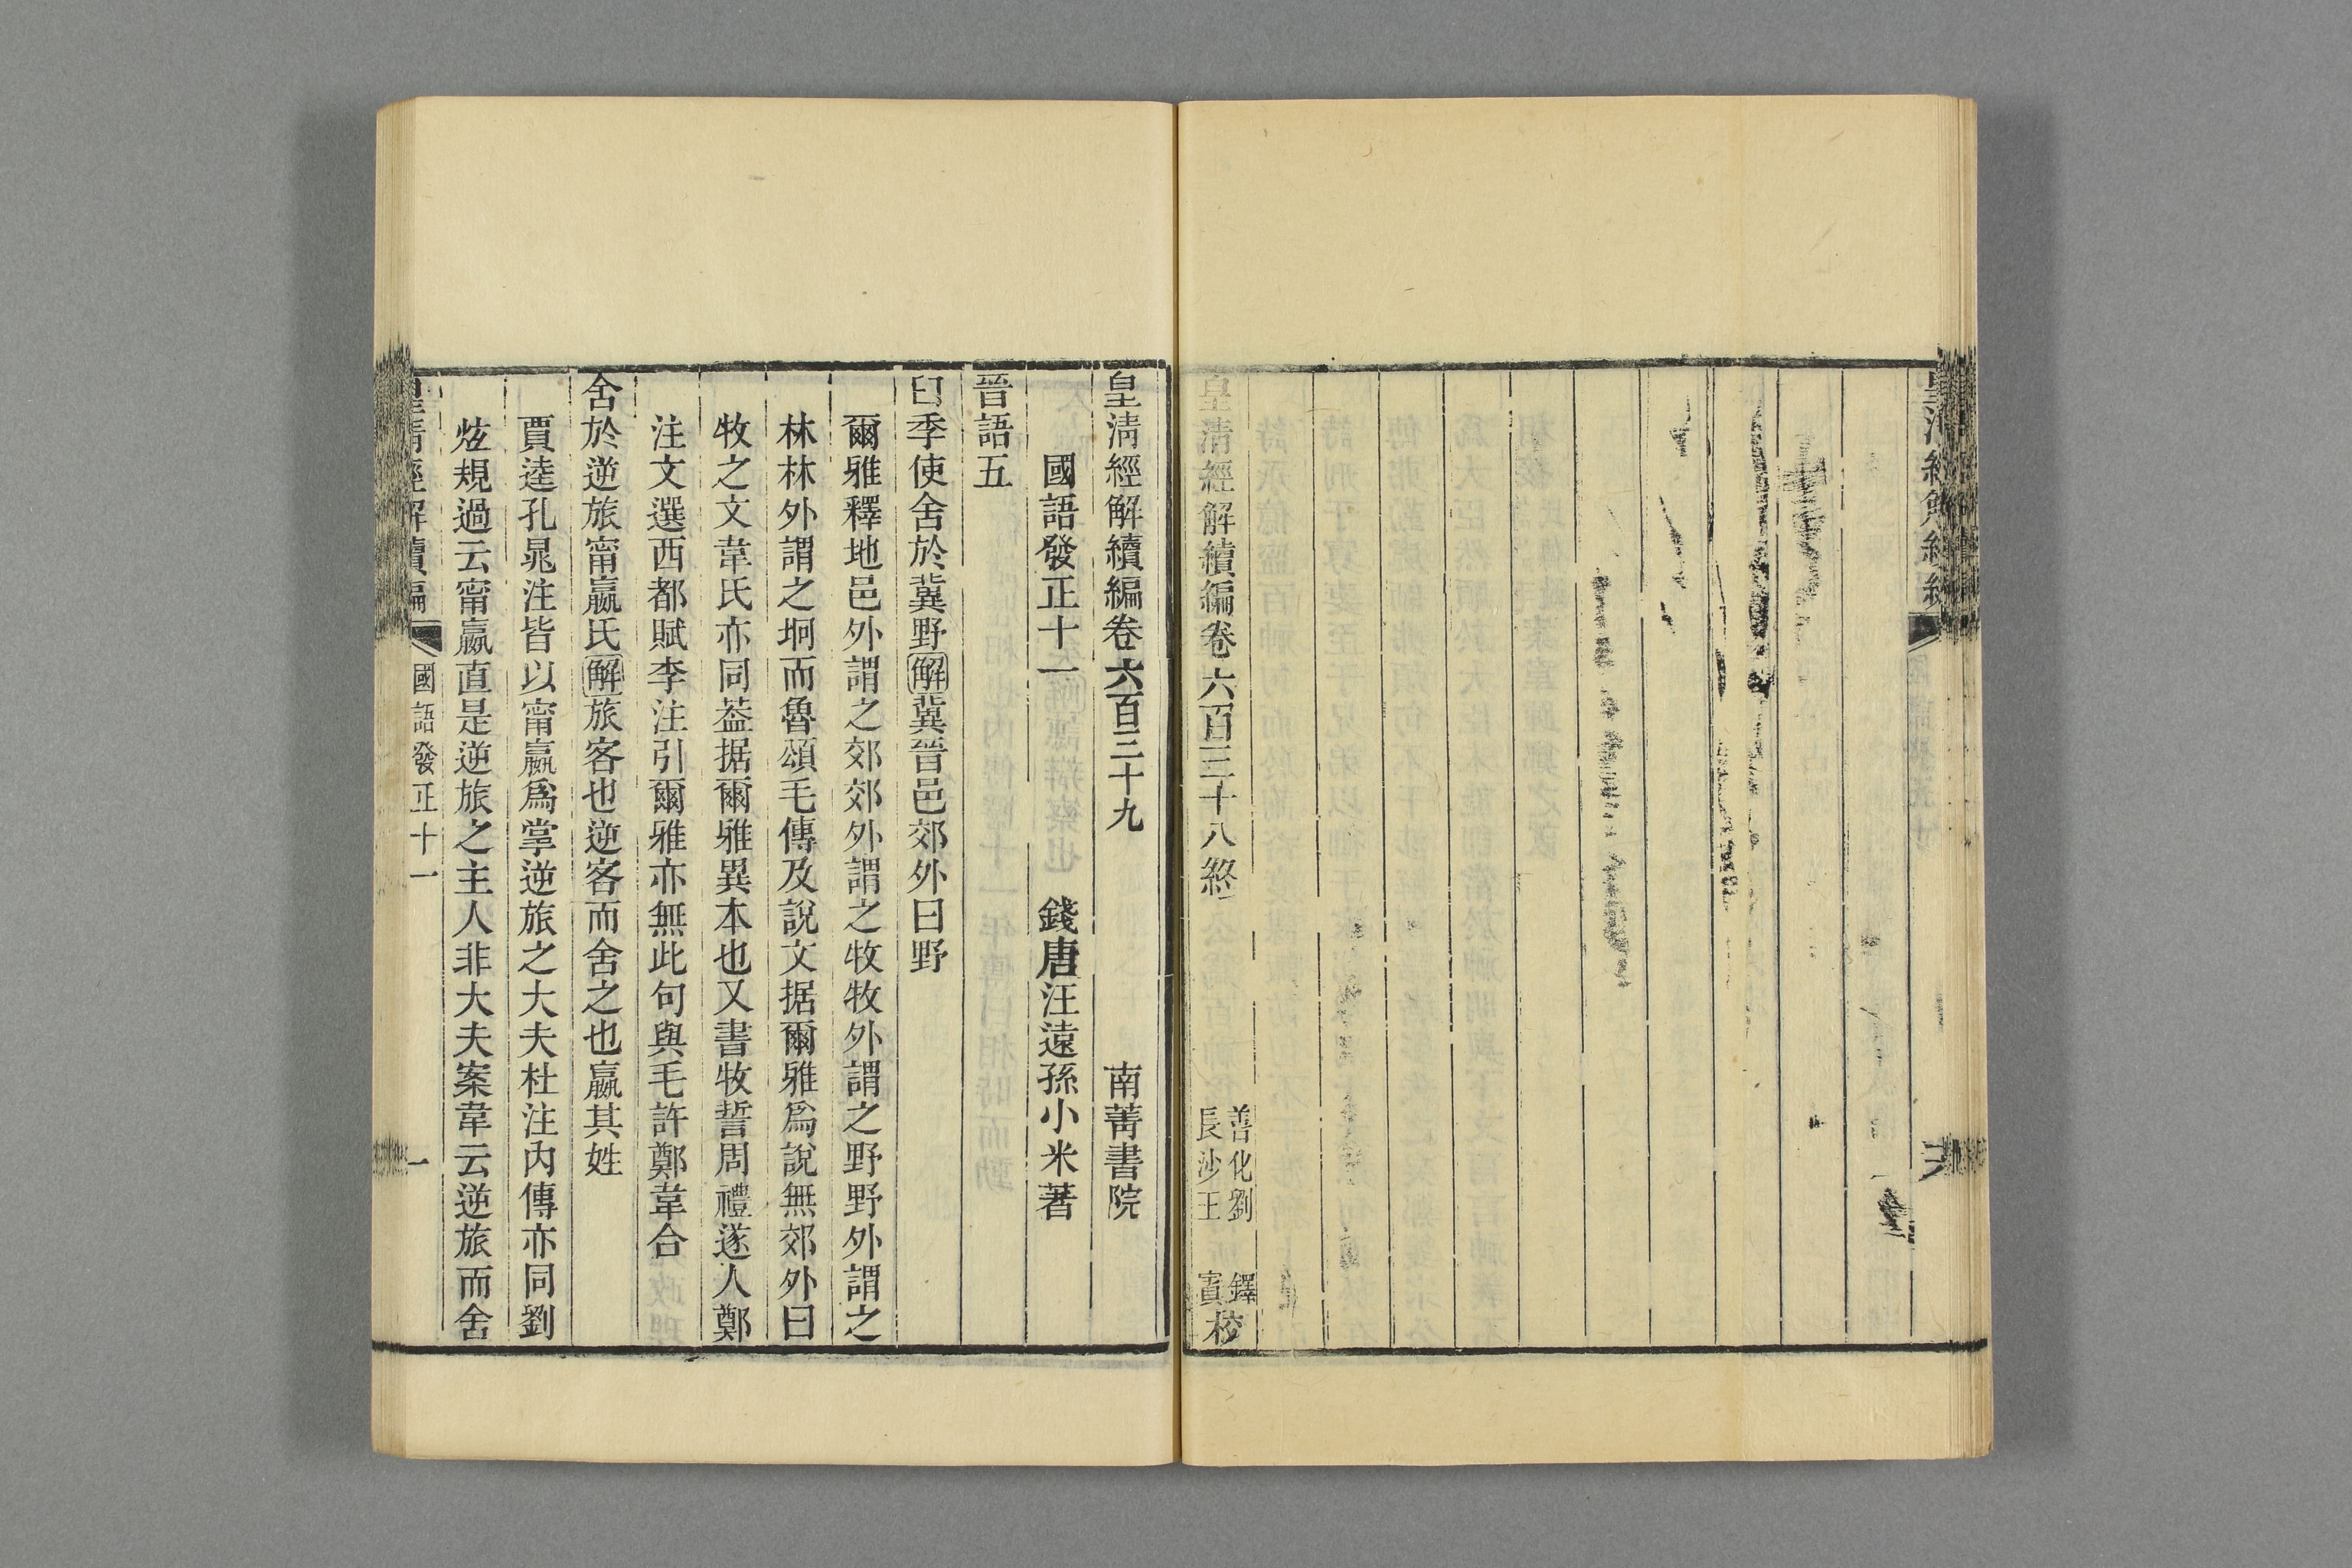 皇清經解續編卷六百三十八終
善化劉 鐸
長沙王 賓
校
皇清經解續編卷六百三十九
南菁書院
國語發正十一
錢唐汪遠孫小米著
晉語五
臼季使舍於冀野解冀晉邑郊外曰野
爾雅釋地邑外謂之郊郊外謂之牧牧外謂之野野外謂之
林林外謂之坰而魯頌毛傳及說文据爾雅爲說無郊外曰
牧之文韋氏亦同葢据爾雅異本也又書牧誓周禮遂人鄭
注文選西都賦李注引爾雅亦無此句與毛許鄭韋合
舍於逆旅甯嬴氏解旅客也逆客而舍之也嬴其姓
賈逵孔晁注皆以甯嬴爲掌逆旅之大夫杜注內傳亦同劉
炫規過云甯嬴直是逆旅之主人非大夫案韋云逆旅而舍
皇清經解續編
國語發正十一
一